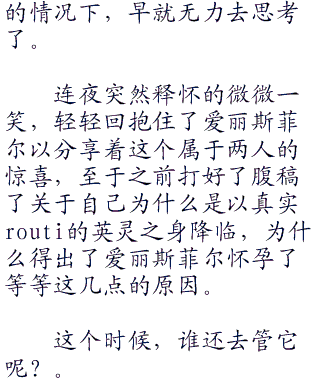 的情况下，早就无力去思考
了。
连夜突然释怀的微微一
笑，轻轻回抱住了爱丽斯菲
尔以分享着这个属于两人的
惊喜，至于之前打好了腹稿
了关于自己为什么是以真实
routi的英灵之身降临，为什
么得出了爱丽斯菲尔怀孕了
等等这几点的原因。
这个时候，谁还去管它
呢？。